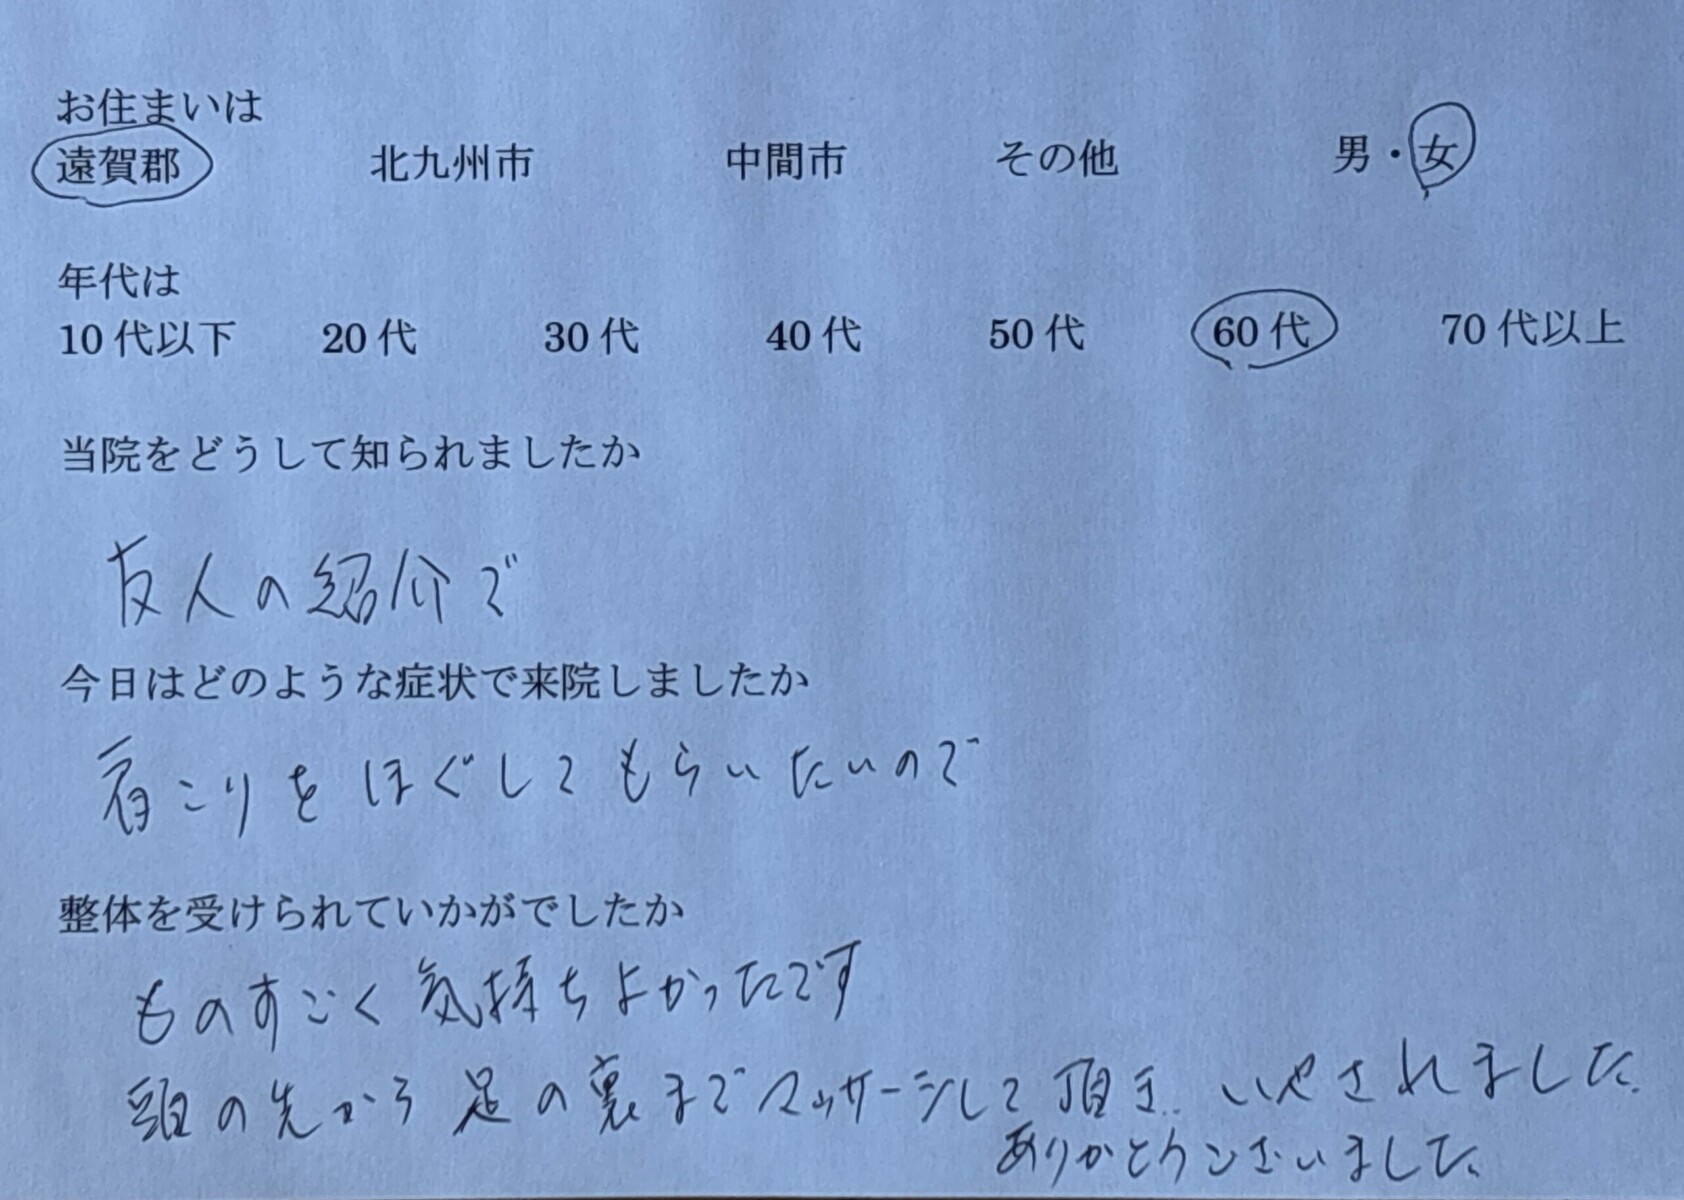 お住まいは
遠賀郡 北九州市 中間市 その他 男・女
年代は
10代以下 20代 30代 40代 50代 60代 70代以上
当院をどうして知られましたか
友人の紹介で
今日はどのような症状で来院しましたか
肩こりをほぐしてもらいたいので
整体を受けられていかがでしたか
ものすごく気持ちよかったです
頭の先から足の裏までマッサージして頂き、いやされました。
ありがとうございました。